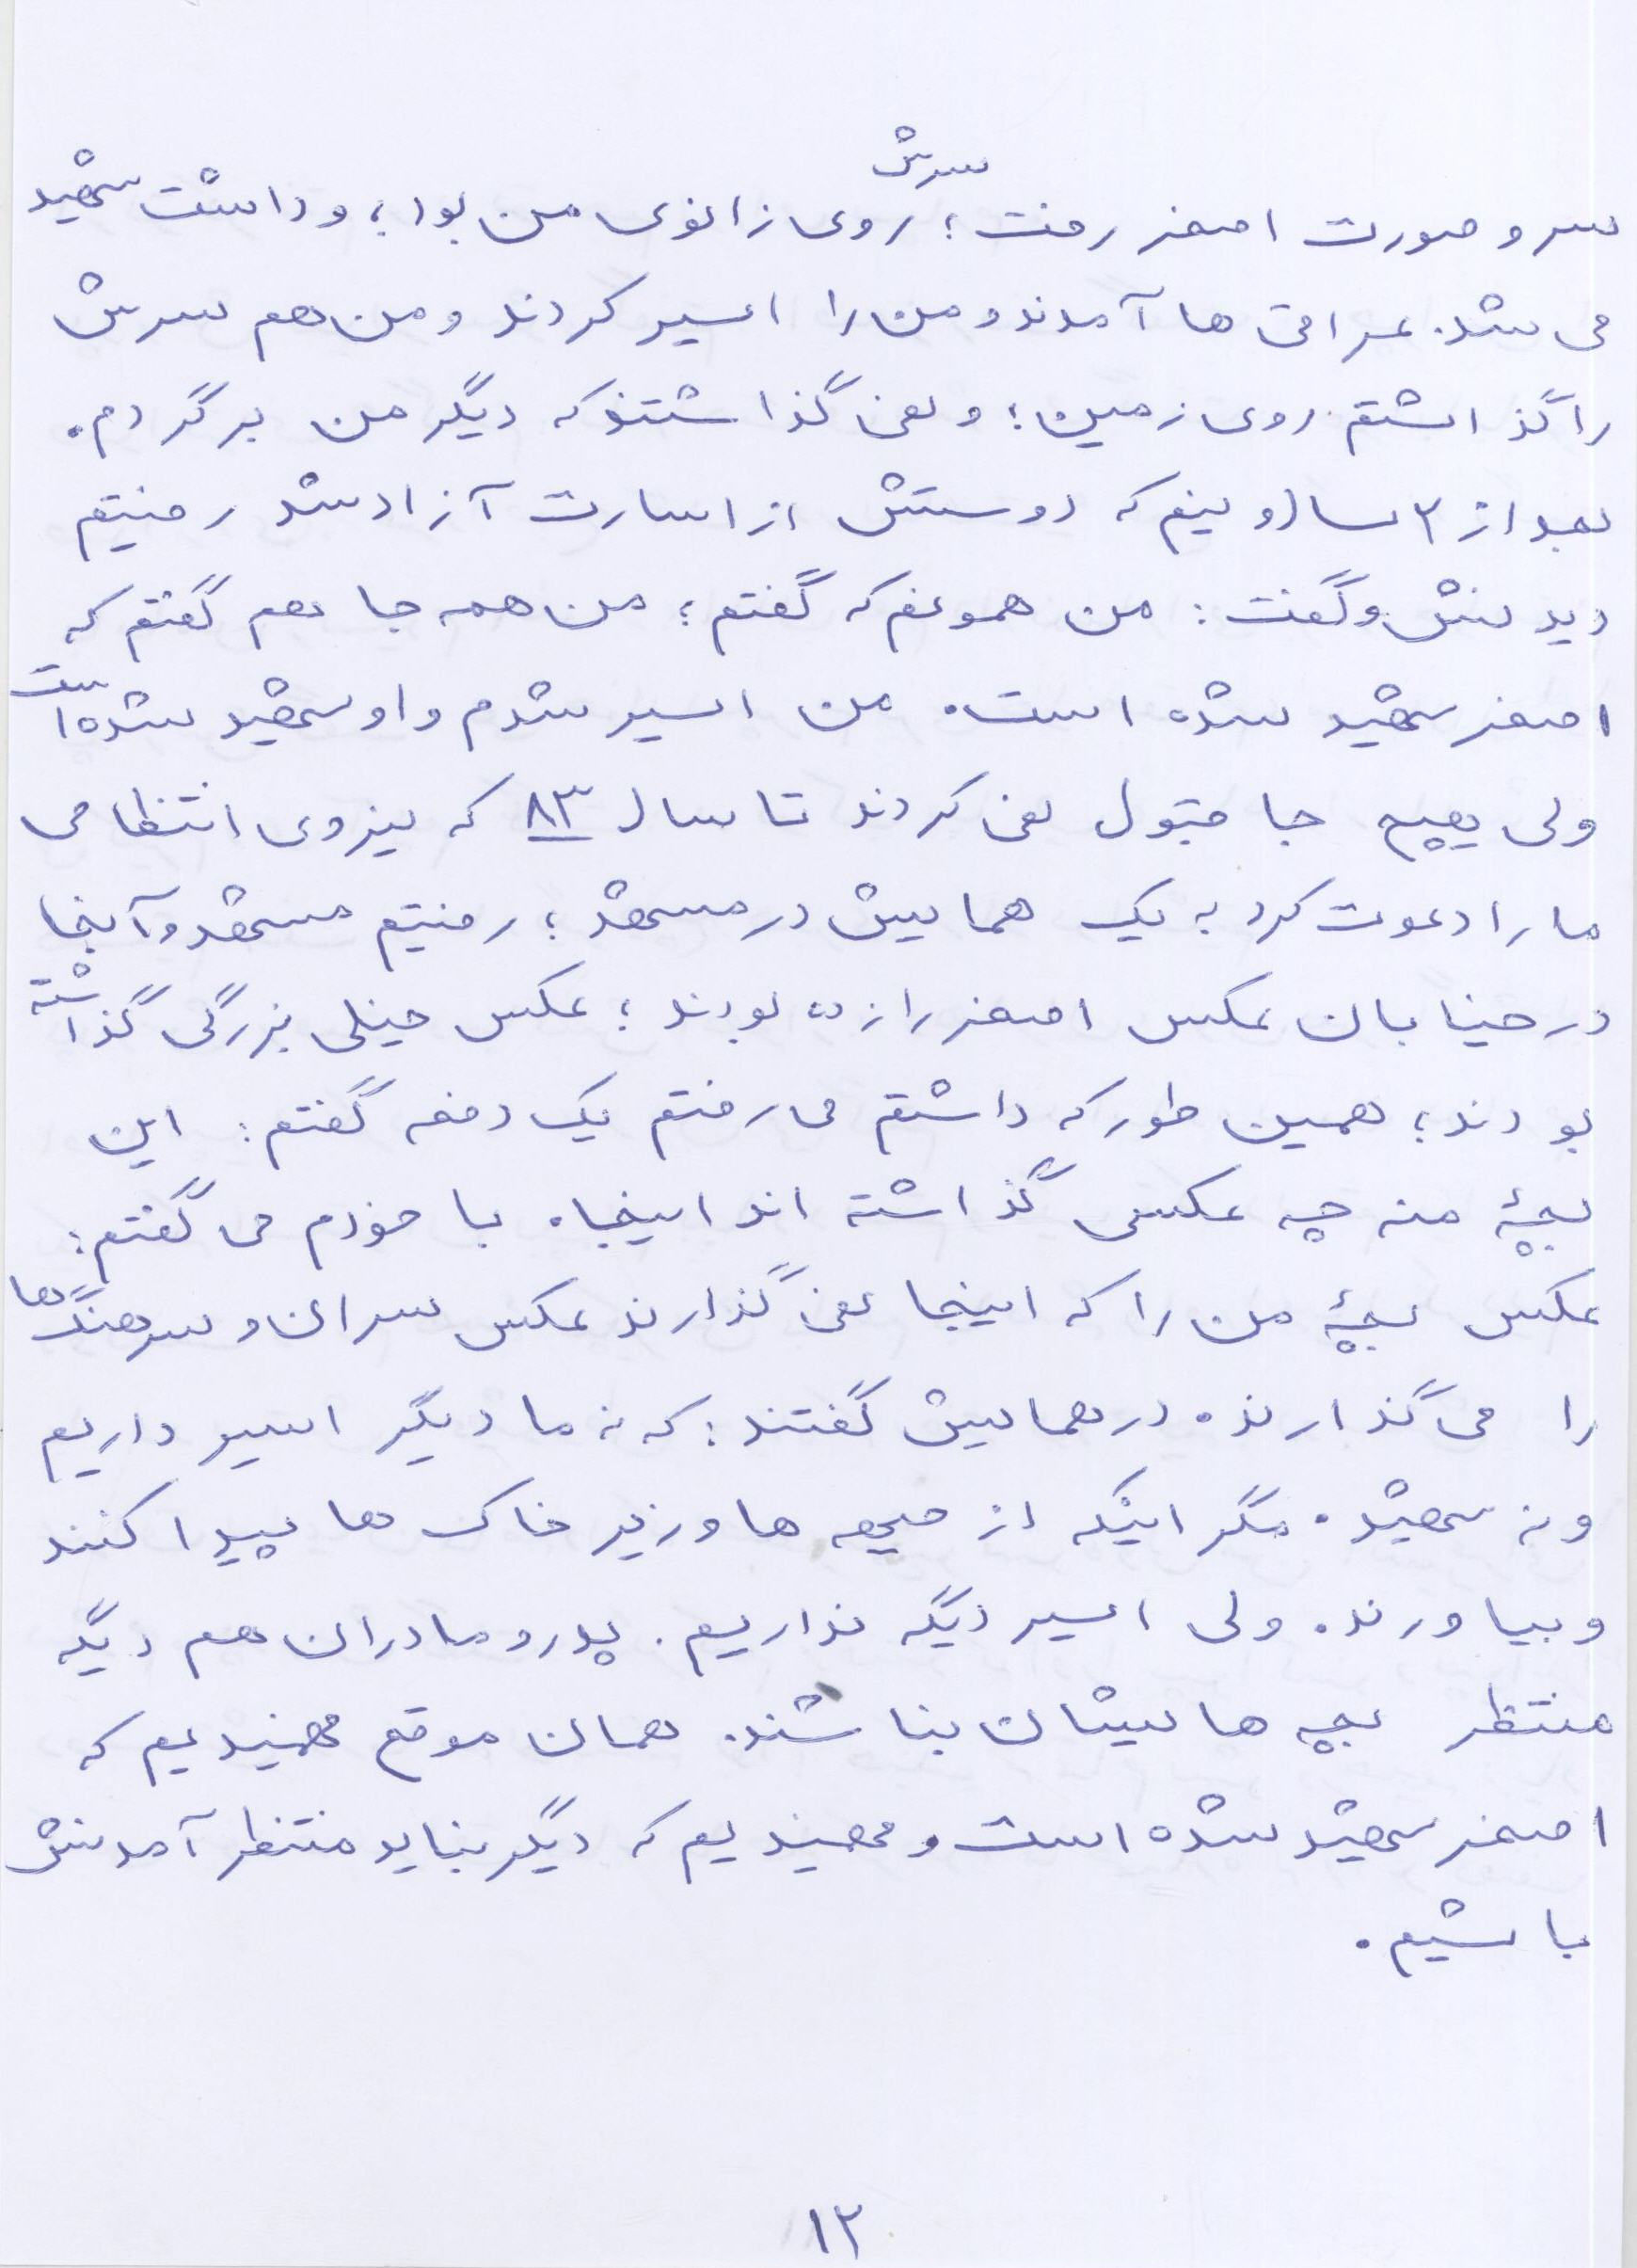 سر و صورت اصغر رفت؛ سرش روی زانوی من بود؛ و داشت شهید
می شد. عراقی ها آمدند و من را اسیر کردند و من هم سرش
را گذاشتم روی زمین؛ و نمی گذاشتند که دیگر من برگردم.
بعد از ۲ سال و نیم که دوستش از اسارت آزاد شد رفتیم
دیدنش و گفت: من همونم که گفتم؛ من همه جا هم گفتم که
اصغر شهید شده است. من اسیر شدم و او شهید شده است
ولی هیچ جا قبول نمی کردند تا سال ۸۳ که نیروی انتظامی
ما را دعوت کرد به یک همایش در مشهد؛ رفتیم مشهد و آنجا
در خیابان عکس اصغر را زده بودند؛ عکس خیلی بزرگی گذاشته
بودند؛ همین طور که داشتم می رفتم یک دفعه گفتم: این
بچهٔ منه چه عکسی گذاشته اند اینجا. با خودم می گفتم:
عکس بچهٔ من را که اینجا نمی گذارند عکس سران و سرهنگ ها
را می گذارند. در همایش گفتند: که نه ما دیگر اسیر داریم
و نه شهید. مگر اینکه از جبهه ها و زیر خاک ها پیدا کنند
و بیاورند. ولی اسیر دیگه نداریم. پدر و مادران هم دیگه
منتظر بچه هایشان نباشند. همان موقع فهمیدیم که
اصغر شهید شده است و فهمیدیم که دیگر نباید منتظر آمدنش
باشیم.
۱۲